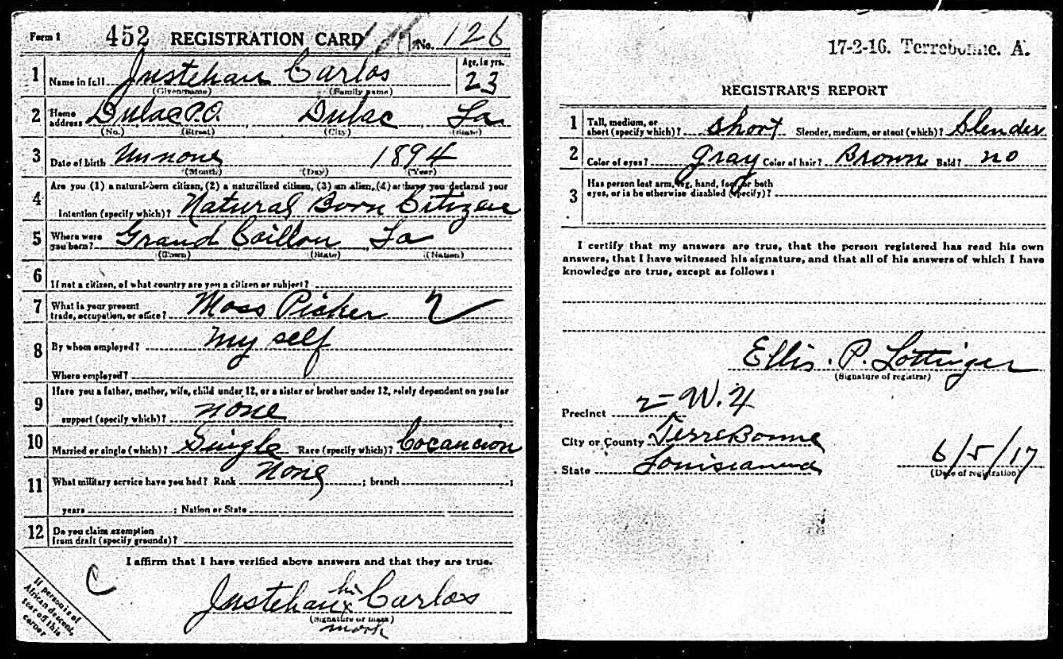 Form 1 452 REGISTRATION CARD No. 126
1 Name in full Justehan Carlos Age, in yrs. 23
(Given name) (Family name)
2 Home address Dulac P.O. Dulac La
(No.) (Street) (City) (State)
3 Date of birth Unnone 1894
(Month) (Day) (Year)
4 Are you (1) a natural-born citizen, (2) a naturalized citizen, (3) an alien, (4) or have you declared your
intention (specify which)? Natural Born Citizen
5 Where were you born? Grand Caillou La
(Town) (State) (Nation)
6 If not a citizen, of what country are you a citizen or subject?
7 What is your present trade, occupation, or office? Moss Picker
8 By whom employed? My self
Where employed?
9 Have you a father, mother, wife, child under 12, or a sister or brother under 12, solely dependent on you for
support (specify which)? none
10 Married or single (which)? Single Race (specify which)? Cocancion
11 What military service have you had? Rank None ; branch ;
years ; Nation or State
12 Do you claim exemption
from draft (specify grounds)?
I affirm that I have verified above answers and that they are true.
C
Justehan his x Carlos
(Signature or mark)
mark
If person is of
African descent,
tear off this
corner
17-2-16. Terrebonne. A.
REGISTRAR'S REPORT
1 Tall, medium, or short (specify which)? Short Slender, medium, or stout (which)? Slender
2 Color of eyes? Gray Color of hair? Brown Bald? no
3 Has person lost arm, leg, hand, foot, or both
eyes, or is he otherwise disabled (specify)?
I certify that my answers are true, that the person registered has read his own
answers, that I have witnessed his signature, and that all of his answers of which I have
knowledge are true, except as follows:
Ellis. P. Lottinger
(Signature of registrar)
Precinct 2 = W. 4
City or County TerreBonne
State Louisianna 6/5/17
(Date of registration)